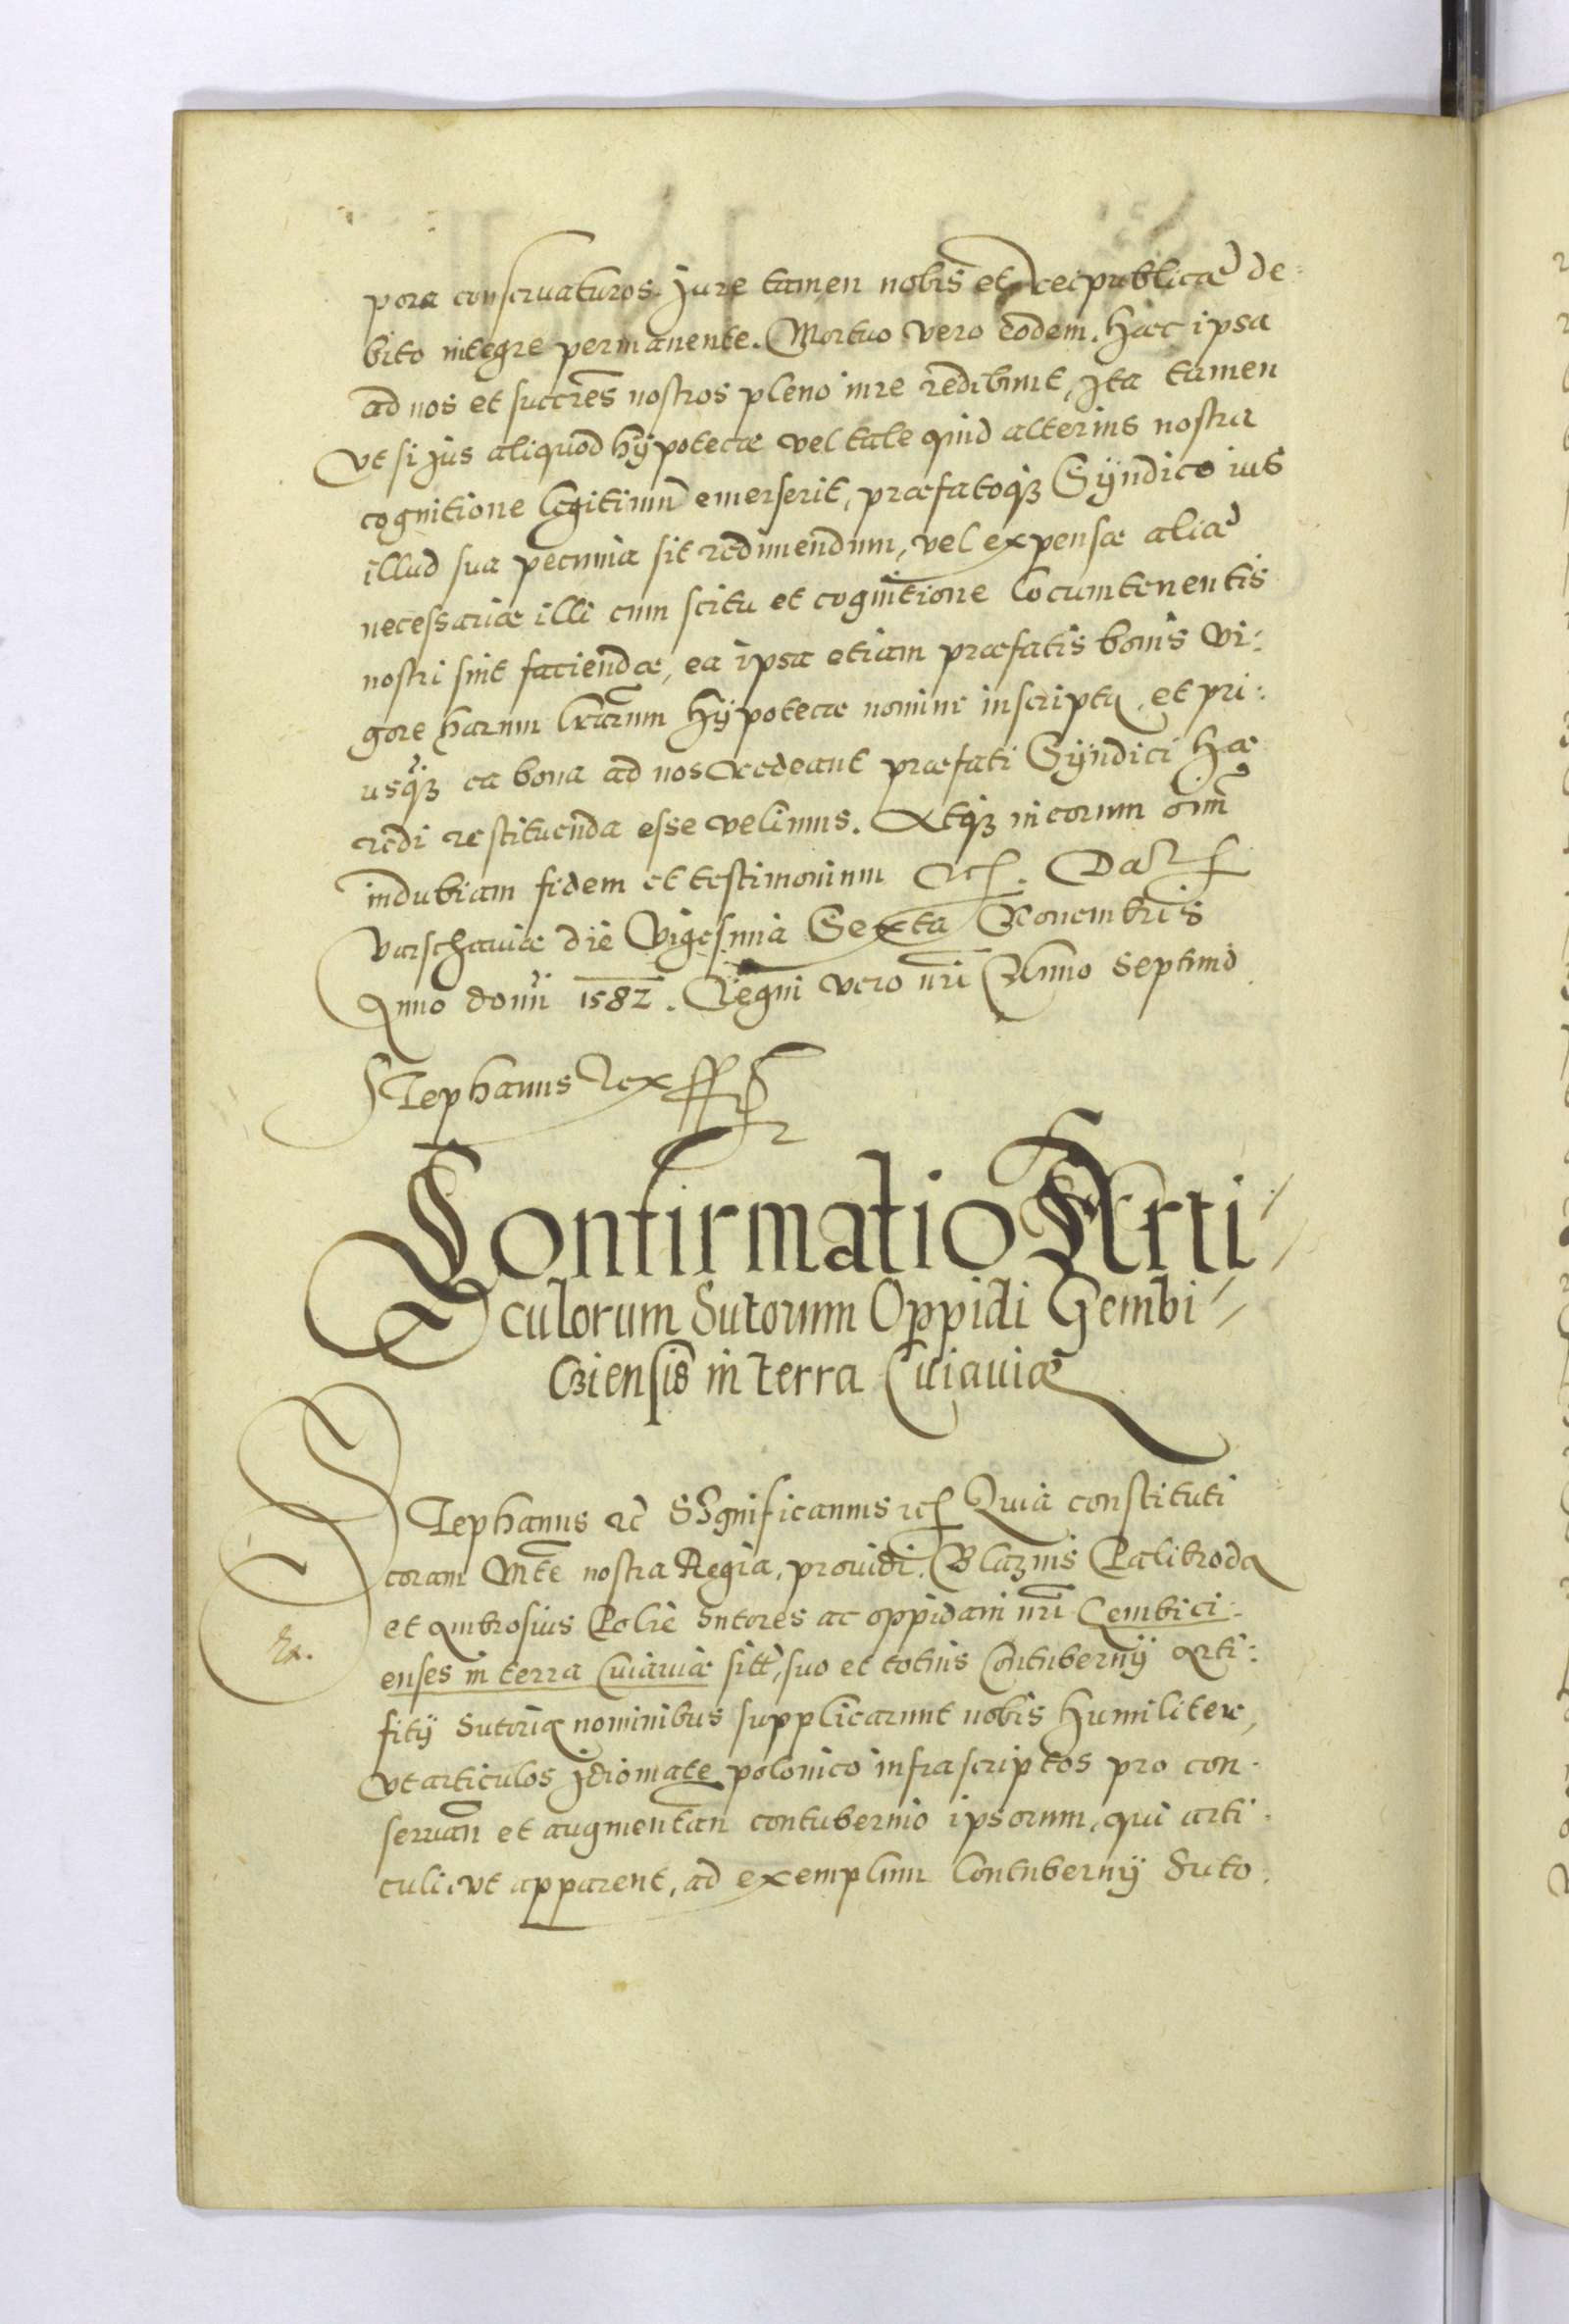 pora conseruaturos. Jure tamen nobis et Reipublicæ de=
bito integre permanente. Mortuo vero eodem. Hæc ipsa
ad nos et succres nostros pleno iure redibunt, Ita tamen
Vt si jus aliquod hÿpotecæ vel tale quid alterius nostra
cognitione legitimũ emerserit, præfatoqꝫ Sÿndico ius
illud sua pecunia sit redimendum, vel expensæ aliæ
necessariæ illi cum scitu et cognitione Locumtenentis
nostri sint faciendæ, ea ipsa etiam præfatis bonis vi:
gore harum lrarum Hÿpotecæ nomine inscripta, et pri:
usqꝫ ea bona ad nos redeant præfati Sÿndici Hæ
redi restituenda esse velimus. Atqꝫ in eorum om̃
indubiam fidem et testimonium etc. Dat
Varschauiæ die Vigesima Sexta Nouembris
Anno domi 1582. Regni vero nri Anno Septimo
Stephanus Rex
Confirmatio Arti
culorum Sutorum Oppidi Gembi
cziensis in terra Cuiauiæ
Stephanus etc Significamus etc Quia constituti
coram Mte nostra Regia, prouidi. Blazius Palibroda
et Ambrosius Polie Sutores ac oppidani nri Gembici:
enses in terra Cuiauiæ sitt, suo et totius Contubernÿ Arti:
fitÿ Sutoriæ nominibus supplicarunt nobis humiliter,
vt articulos Idiomate polonico infrascriptos pro con-
seruan et augmentan contubernio ipsorum, qui arti-
culi, vt apparent, ad exemplum Contubernÿ Suto: